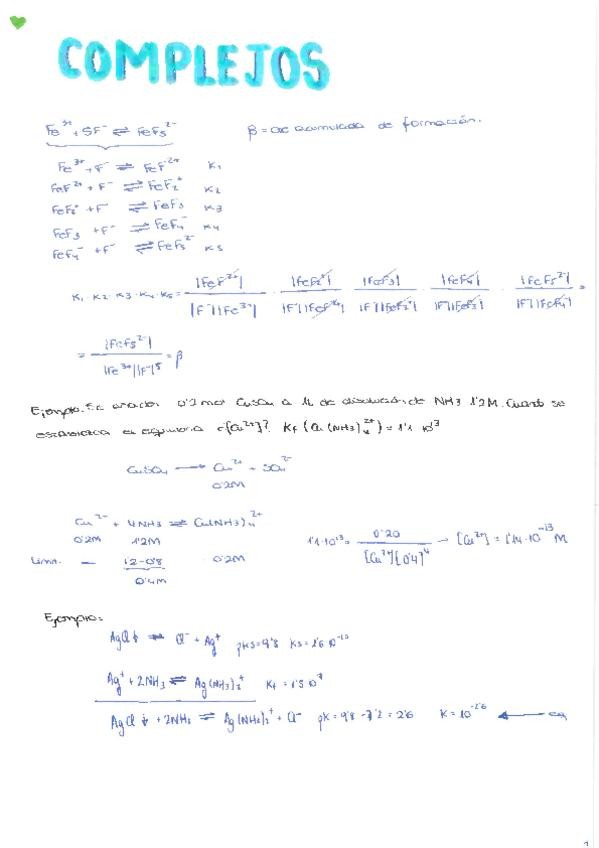 COMPLEJOS
Fe³⁺ + 5F⁻ ⇌ FeF₅²⁻ β = cte acumulada de formación.
Fe³⁺ + F⁻ ⇌ FeF²⁺ K₁
FeF²⁺ + F⁻ ⇌ FeF₂⁺ K₂
FeF₂⁺ + F⁻ ⇌ FeF₃ K₃
FeF₃ + F⁻ ⇌ FeF₄⁻ K₄
FeF₄⁻ + F⁻ ⇌ FeF₅²⁻ K₅
K₁·K₂·K₃·K₄·K₅ = |FeF²⁺| / |F⁻||Fe³⁺| · |FeF₂⁺| / |F⁻||FeF²⁺| · |FeF₃| / |F⁻||FeF₂⁺| · |FeF₄⁻| / |F⁻||FeF₃| · |FeF₅²⁻| / |F⁻||FeF₄⁻| =
= |FeF₅²⁻| / |Fe³⁺||F⁻|⁵ = β
Ejemplo. Se añaden 0'2 mol CuSO₄ a 1L de disolución de NH₃ 1'2M. Cuando se
establezca el equilibrio ¿[Cu²⁺]? Kf (Cu(NH₃)₄²⁺) = 1'1·10¹³
CuSO₄ → Cu²⁺ + SO₄²⁻
0'2M
Cu²⁺ + 4NH₃ ⇌ Cu(NH₃)₄²⁺
0'2M 1'2M 1'1·10¹³ = 0'20 / [Cu²⁺][0'4]⁴ → [Cu²⁺] = 7'14·10⁻¹³ M
Limit. — 1'2-0'8 0'2M
0'4M
Ejemplo:
AgCl↓ ⇌ Cl⁻ + Ag⁺ pKs = 9'8 Ks = 1'6·10⁻¹⁰
Ag⁺ + 2NH₃ ⇌ Ag(NH₃)₂⁺ Kf = 1'5·10⁷
AgCl↓ + 2NH₃ ⇌ Ag(NH₃)₂⁺ + Cl⁻ pK = 9'8 - 7'2 = 2'6 K = 10⁻²'⁶ ←
1